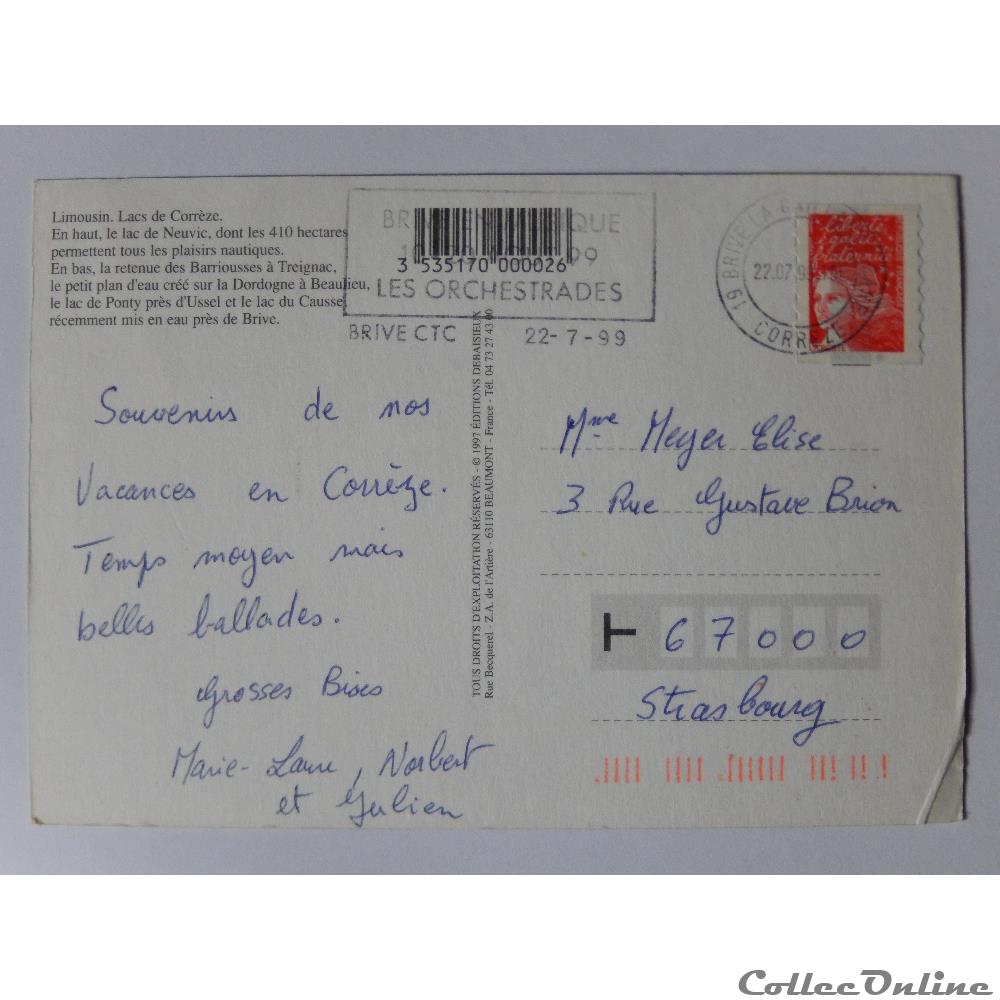 Limousin. Lacs de Corrèze.
En haut, le lac de Neuvic, dont les 410 hectares
permettent tous les plaisirs nautiques.
En bas, la retenue des Barriousses à Treignac,
le petit plan d'eau créé sur la Dordogne à Beaulieu,
le lac de Ponty près d'Ussel et le lac du Causse,
récemment mis en eau près de Brive.
3 535170 000026
LES ORCHESTRADES
BRIVE CTC 22-7-99
19 BRIVE LA GAILLARDE
22.07.99
CORREZE
liberté
égalité
fraternité
TOUS DROITS D'EXPLOITATION RÉSERVÉS - © 1997 ÉDITIONS DEBAISIEUX
Rue Becquerel - Z.A. de l'Artière - 63110 BEAUMONT - France - Tél. 04 73 27 43 00
Souvenirs de nos
Vacances en Corrèze.
Temps moyen mais
belles ballades.
Grosses Bises
Marie-Laure, Norbert
et Julien
Mme Meyer Elise
3 Rue Gustave Brion
67000
Strasbourg
CollecOnline